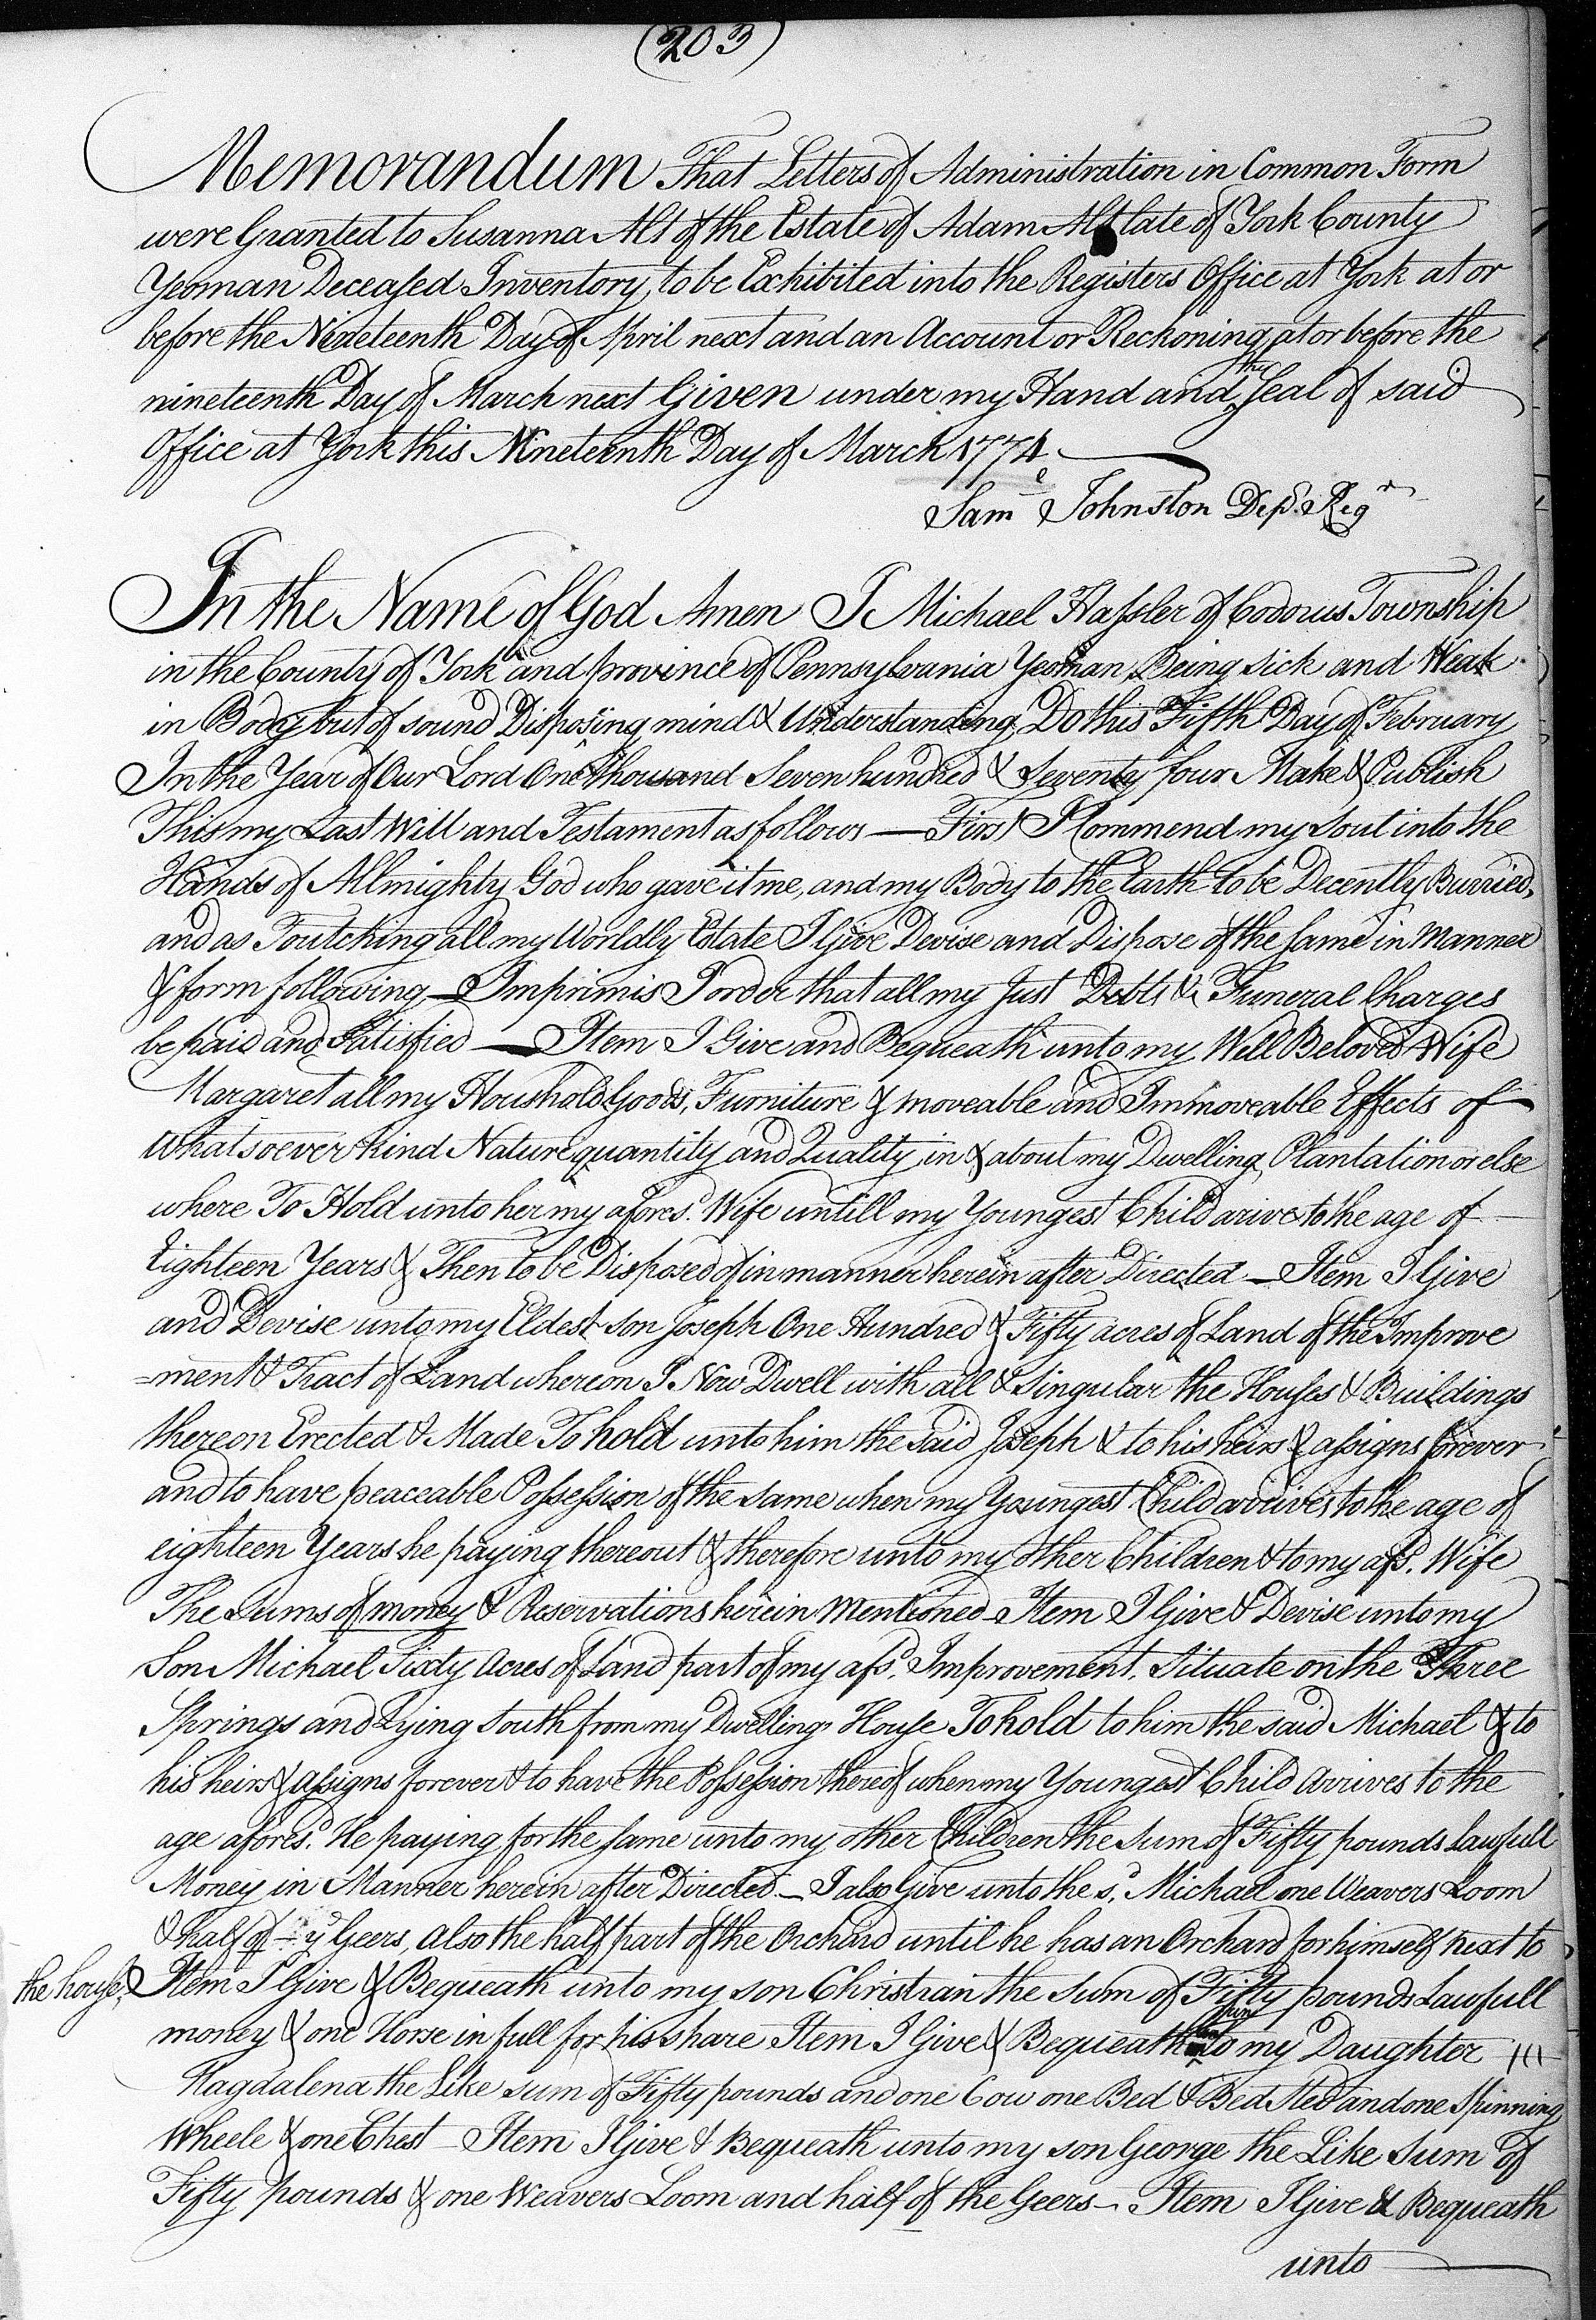 (203)
Memorandum That Letters of Administration in Common Form
were Granted to Susanna Alt of the Estate of Adam Alt late of York County
Yeoman Deceased Inventory to be Exhibited into the Registers Office at York at or
before the Nineteenth Day of April next and an Account or Reckoning at or before the
nineteenth Day of March next Given under my Hand and the Seal of said
Office at York this Nineteenth Day of March 1774.
Saml Johnston Dep. Regr
In the Name of God Amen I Michael Hassler of Codorus Township
in the County of York and province of Pennsylvania Yeoman, Being sick and Weak
in Body but of sound Disposing mind & Understanding Do this Fifth Day of February
In the Year of Our Lord One thousand Seven hundred & Seventy four Make & Publish
This my Last Will and Testament as follows — First I Commend my Soul into the
Hands of Allmighty God who gave it me, and my Body to the Earth to be Decently Burried,
and as Toutching all my Worldly Estate I Give Devise and Dispose of the same in Manner
& form following — Imprimis I order that all my Just Debts & Funeral Charges
be paid and Satisfied — Item I Give and Bequeath unto my Well Beloved Wife
Margaret all my Houshold Goods, Furniture & moveable and Immoveable Effects of
whatsoever kind Nature quantity and Quality in & about my Dwelling Plantation or else
where To Hold unto her my afores.d Wife untill my Youngest Child arive to the age of
Eighteen Years & Then to be Disposed of in manner herein after Directed — Item I Give
and Devise unto my Eldest son Joseph One Hundred & Fifty acres of Land of the Improve
=ment & Tract of Land whereon I Now Dwell with all & singular the Houses & Buildings
thereon Erected & Made To hold unto him the said Joseph & to his heirs & assigns forever
and to have peaceable Possession of the same when my Youngest Child arrives to the age of
eighteen Years he paying thereout & therefore unto my other Children & to my afs.d Wife
The Sums of money & Reservations herein Mentioned — Item I Give & Devise unto my
Son Michael Sixty Acres of Land part of my afs.d Improvement. Situate on the Three
Springs and Lying South from my Dwelling House To hold to him the said Michael & to
his heirs & assigns forever & to have the Possession thereof when my Youngest Child Arrives to the
age afores.d He paying for the same unto my other Children the sum of Fifty pounds Lawfull
Money in Manner herein after Directed — I also Give unto the s.d Michael one Weavers Loom
& half of ye Geers, also the half part of the Orchard until he has an Orchard for himself next to
the house, & Item I Give & Bequeath unto my son Christian the Sum of Fifty pounds Lawfull
money & one Horse in full for his share Item I Give & Bequeath unto my Daughter
Magdalena the Like sum of Fifty pounds and one Cow one Bed & Bed sted and one Spinning
Wheele & one Chest — Item I Give & Bequeath unto my son George the Like Sum of
Fifty pounds & one Weavers Loom and half of the Geers — Item I Give & Bequeath
unto